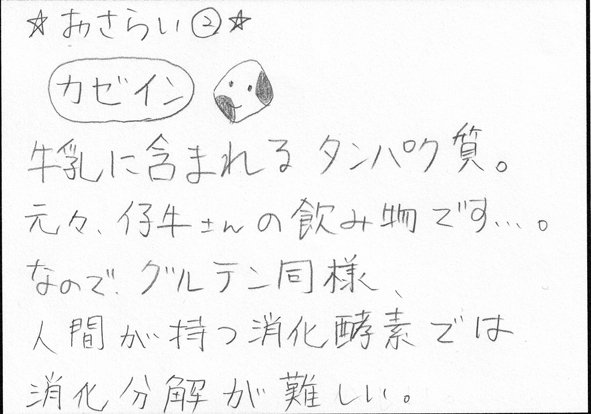 ☆おさらい②☆
カゼイン
牛乳に含まれるタンパク質。
元々、仔牛さんの飲み物です…。
なので、グルテン同様、
人間が持つ消化酵素では
消化分解が難しい。